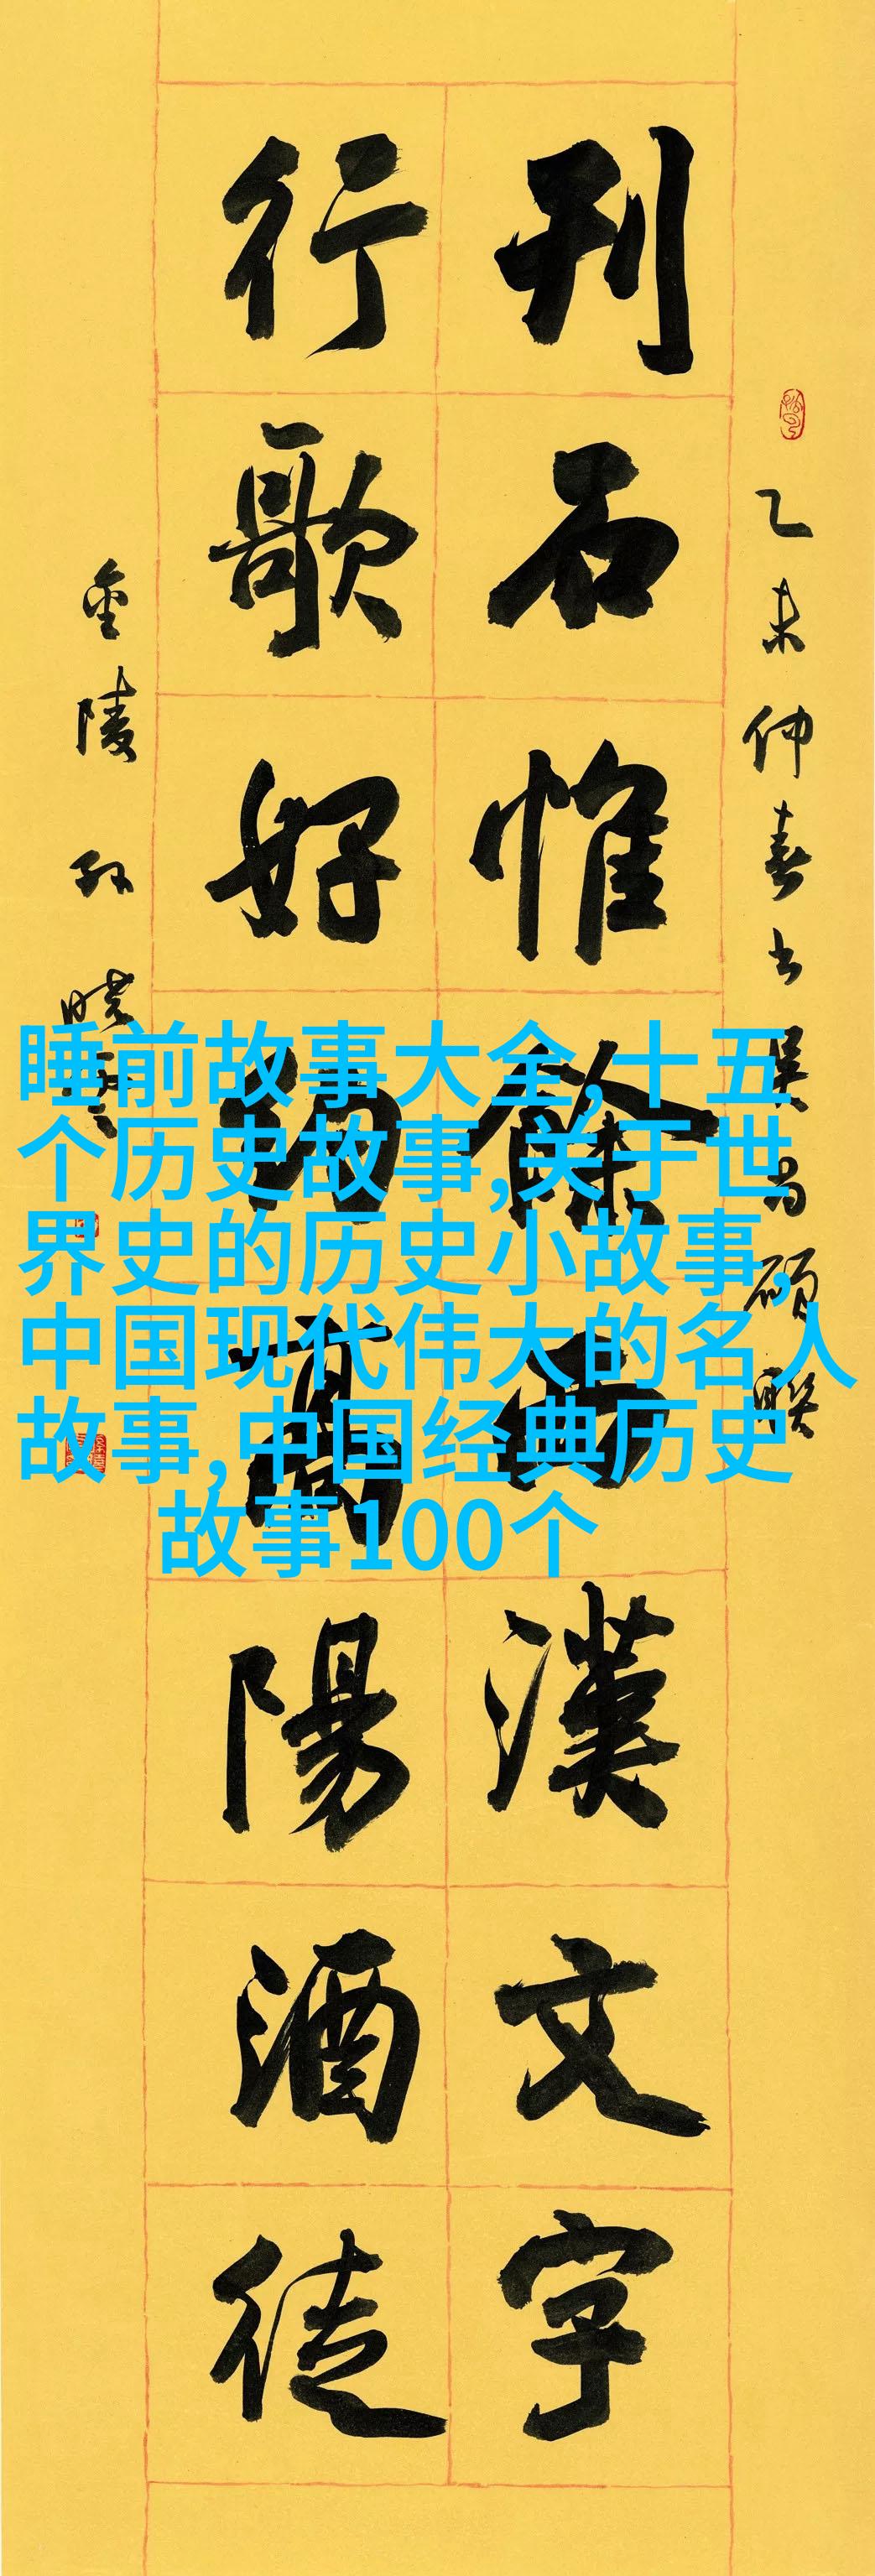 乙未仲春书吴昌硕联
刊石惟餘西漢文字
行歌好約高陽酒徒
金陵孙晓云
睡前故事大全,十五
个历史故事,关于世
界史的历史小故事,
中国现代伟大的名人
故事,中国经典历史
故事100个